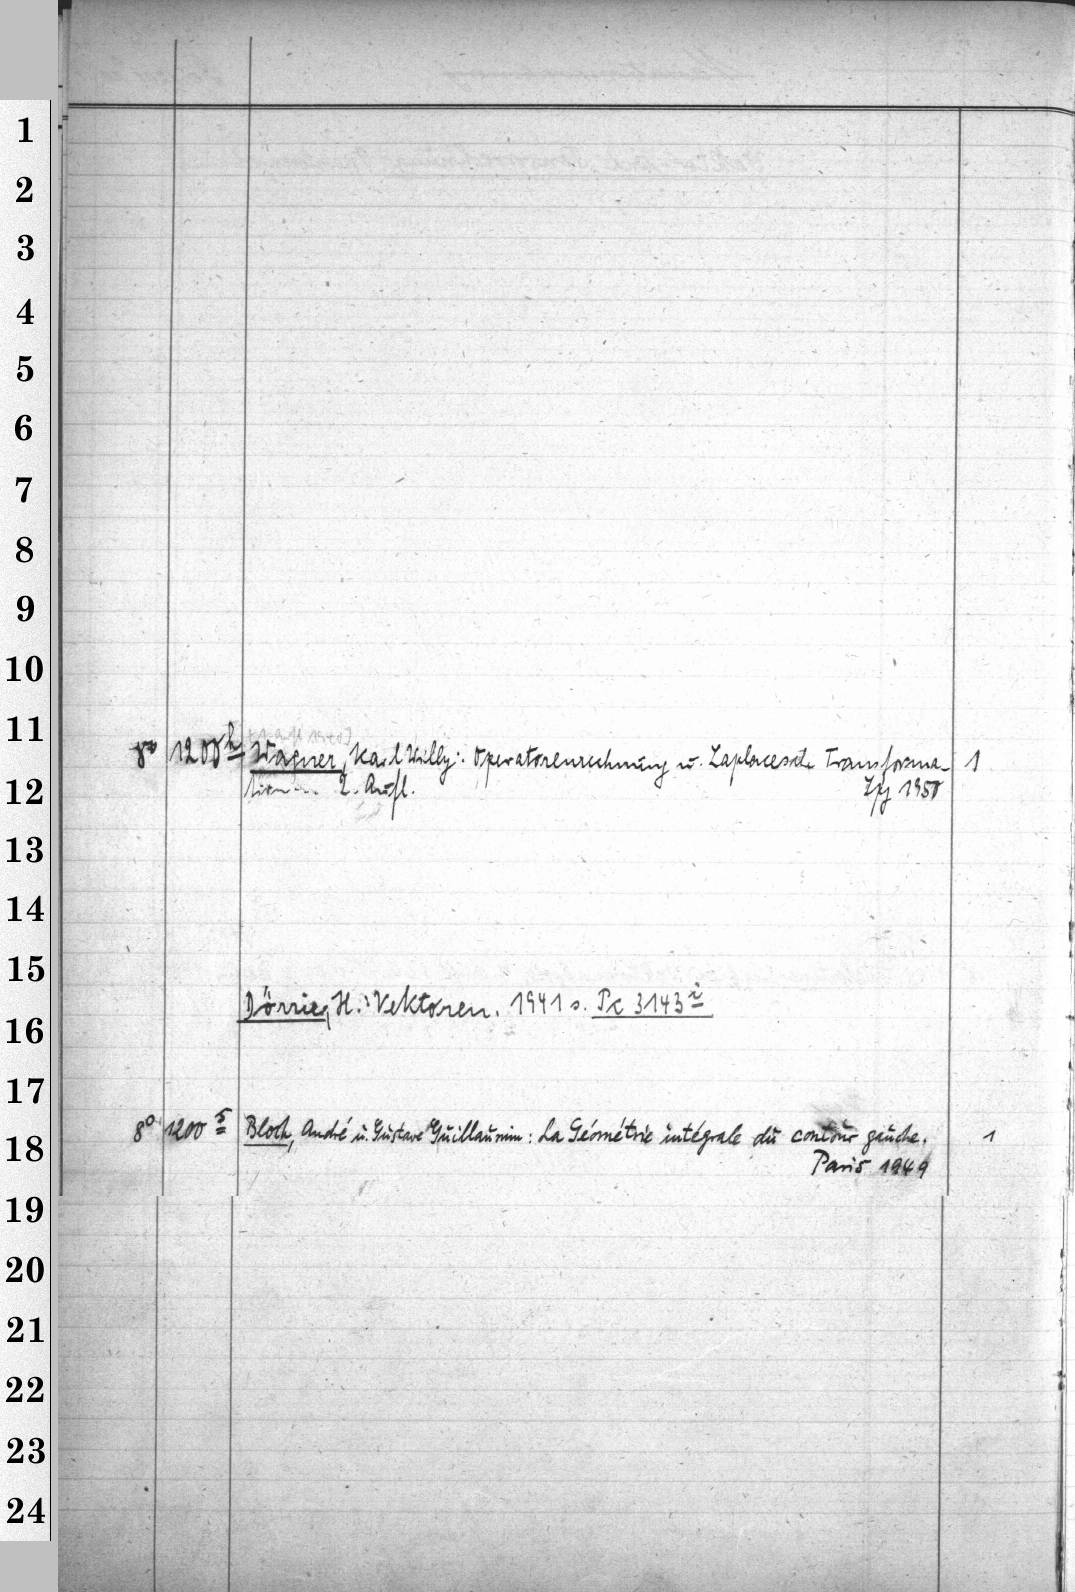 1
2
3
4
5
6
7
8
9
10
11
8° 1200 h Wagner, Karl Willy: Operatorenrechnung u. Laplacesche Transforma- 1
12
tion 2. Aufl. Lpz 1950
13
14
15
Dörrie, H.: Vektoren. 1941 s. Pc 3143 i
16
17
8° 1200 5 Bloch, André u. Gustave Guillaumin: La Géométrie intégrale du contour gauche. 1
18
Paris 1949
19
20
21
22
23
24